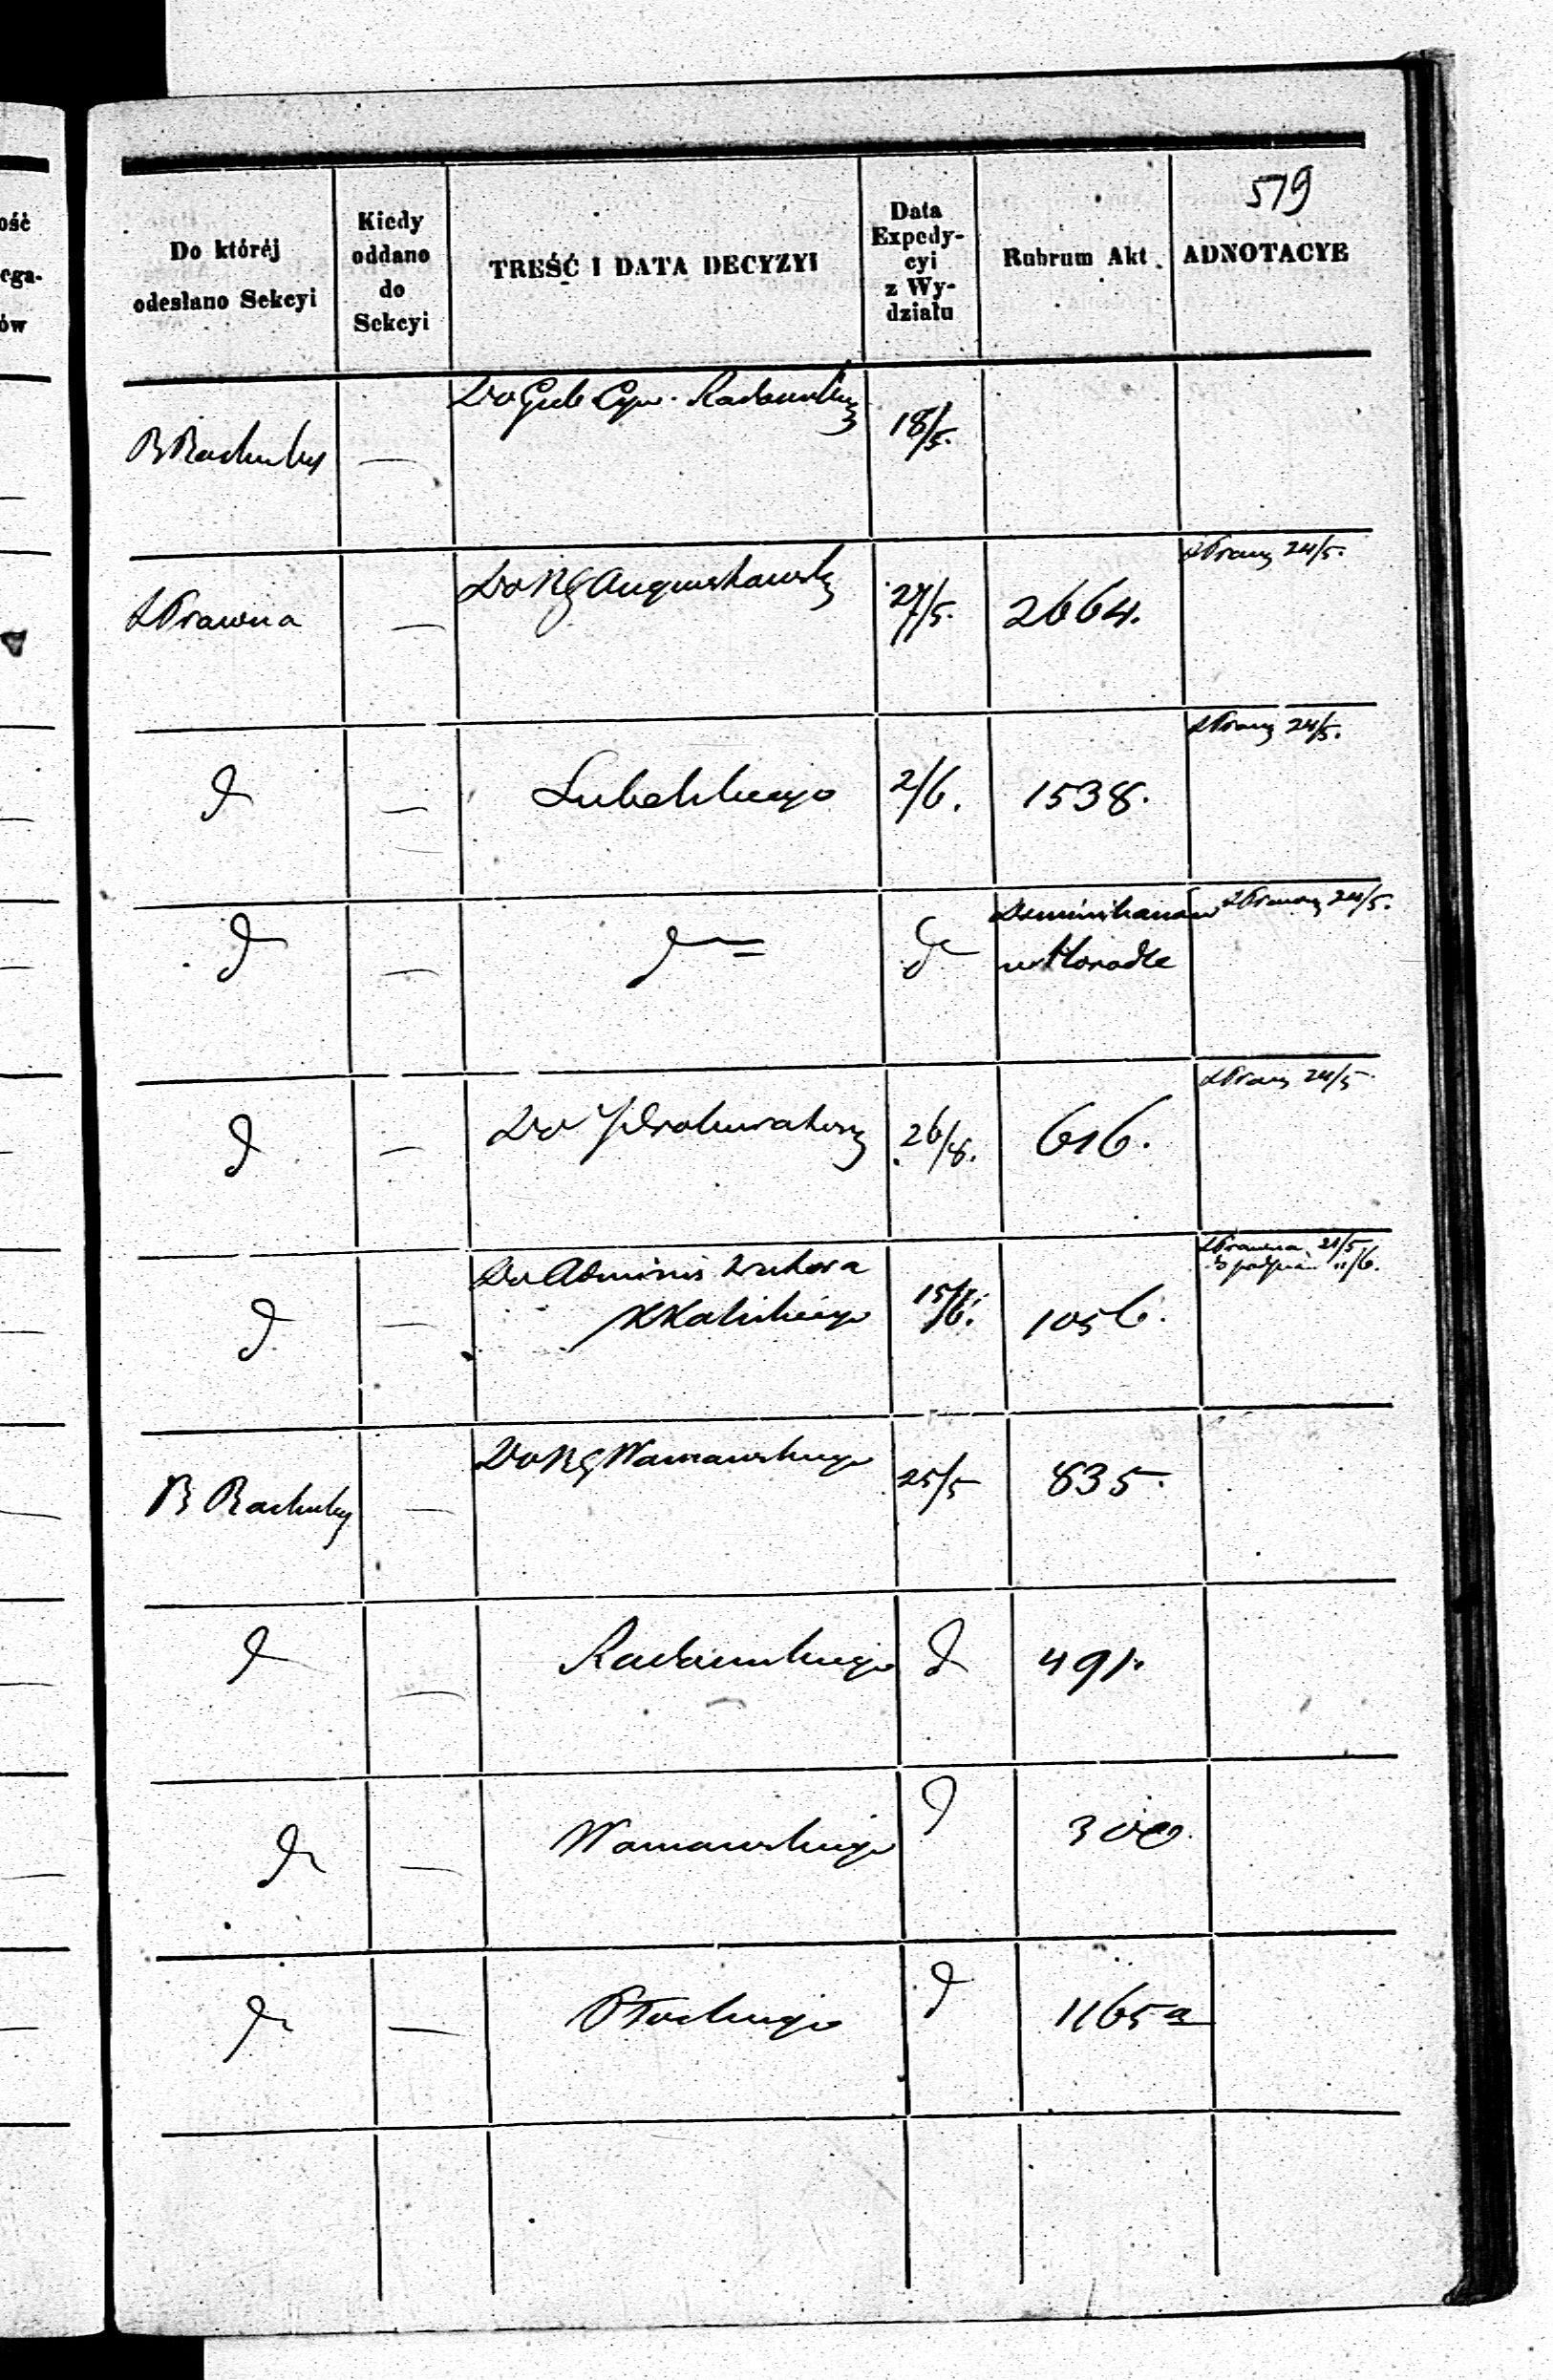 519
ość
ega-
ów
Do któréj
odesłano Sekcyi
Kiedy
oddano
do
Sekcyi
TREŚĆ I DATA DECYZYI
Data
Expedy-
cyi
z Wy-
działu
Rubrum Akt.
ADNOTACYE
B Rachuby
—
Do Gub Cyw. Radomskiej
18/5.
Prawna
—
Do RG Augustowsk
27/5.
2664.
24/5.
d
—
Lubelskiego
2/6.
1538.
24/5.
d
—
d =
d
Dominikanów
w Horodle
24/5.
d
—
Do Prokuratory
26/8.
616.
24/5
d
—
Do Adminis tratora
Kaliskiego
15/6.
1056.
Prawna 21/5
11/6.
B Rachuby
—
Do RG Warszawskiego
25/5
835.
d
—
Radomskiego
d
491.
d
—
Warszawskiego
d
300.
d
—
Płockiego
d
1165a